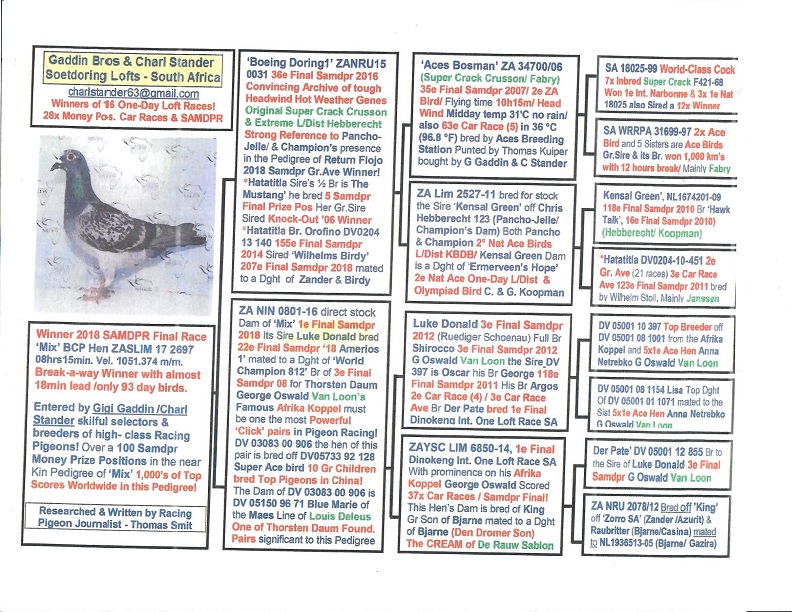 Gaddin Bros & Charl Stander
Soetdoring Lofts - South Africa
charlstander63@gmail.com
Winners of 16 One-Day Loft Races!
28x Money Pos. Car Races & SAMDPR
Winner 2018 SAMDPR Final Race
'Mix' BCP Hen ZASLIM 17 2697
08hrs15min. Vel. 1051.374 m/m.
Break-a-way Winner with almost
18min lead /only 93 day birds.
Entered by Gigi Gaddin /Charl
Stander skilful selectors &
breeders of high- class Racing
Pigeons! Over a 100 Samdpr
Money Prize Positions in the near
Kin Pedigree of 'Mix' 1,000's of Top
Scores Worldwide in this Pedigree!
Researched & Written by Racing
Pigeon Journalist - Thomas Smit
'Boeing Doring1' ZANRU15
0031 36e Final Samdpr 2016
Convincing Archive of tough
Headwind Hot Weather Genes
Original Super Crack Crusson
& Extreme L/Dist Hebberecht
Strong Reference to Pancho-
Jelle/ & Champion's presence
in the Pedigree of Return Flojo
2018 Samdpr Gr.Ave Winner!
*Hatatitla Sire's ½ Br is The
Mustang' he bred 5 Samdpr
Final Prize Pos Her Gr.Sire
Sired Knock-Out '06 Winner
*Hatatitla Br. Orofino DV0204
13 140 155e Final Samdpr
2014 Sired 'Wilhelms Birdy'
207e Final Samdpr 2018 mated
to a Dght of Zander & Birdy
ZA NIN 0801-16 direct stock
Dam of 'Mix' 1e Final Samdpr
2018 Its Sire Luke Donald bred
22e Final Samdpr '18 Amerios
1' mated to a Dght of 'World
Champion 812' Br of 3e Final
Samdpr 08 for Thorsten Daum
George Oswald Van Loon's
Famous Afrika Koppel must
be one the most Powerful
'Click' pairs in Pigeon Racing!
DV 03083 00 906 the hen of this
pair is bred off DV05733 92 128
Super Ace bird 10 Gr Children
bred Top Pigeons in China!
The Dam of DV 03083 00 906 is
DV 05150 96 71 Blue Marie of
the Maes Line of Louis Deleus
One of Thorsten Daum Found.
Pairs significant to this Pedigree
'Aces Bosman' ZA 34700/06
(Super Crack Crusson/ Fabry)
35e Final Samdpr 2007/ 2e ZA
Bird/ Flying time 10h15m/ Head
Wind Midday temp 31°C no rain/
also 63e Car Race (5) in 36 °C
(96.8 °F) bred by Aces Breeding
Station Punted by Thomas Kuiper
bought by G Gaddin & C Stander
ZA Lim 2527-11 bred for stock
the Sire 'Kensal Green' off Chris
Hebberecht 123 (Pancho-Jelle/
Champion's Dam) Both Pancho
& Champion 2° Nat Ace Birds
L/Dist KBDB/ Kensal Green Dam
is a Dght of 'Ermerveen's Hope'
2e Nat Ace One-Day L/Dist &
Olympiad Bird C. & G. Koopman
Luke Donald 3e Final Samdpr
2012 (Ruediger Schoenau) Full Br
Shirocco 3e Final Samdpr 2012
G Oswald Van Loon the Sire DV
397 is Oscar his Br George 118e
Final Samdpr 2011 His Br Argos
2e Car Race (4) / 3e Car Race
Ave Br Der Pate bred 1e Final
Dinokeng Int. One Loft Race SA
ZAYSC LIM 6850-14, 1e Final
Dinokeng Int. One Loft Race SA
With prominence on his Afrika
Koppel George Oswald Scored
37x Car Races / Samdpr Final!
This Hen's Dam is bred of King
Gr Son of Bjarne mated to a Dght
of Bjarne (Den Dromer Son)
The CREAM of De Rauw Sablon
SA 18025-99 World-Class Cock
7x Inbred Super Crack F421-68
Won 1e Int. Narbonne & 3x 1e Nat
18025 also Sired a 12x Winner
SA WRRPA 31699-97 2x Ace
Bird and 5 Sisters are Ace Birds
Gr.Sire & its Br. won 1,000 km's
with 12 hours break/ Mainly Fabry
Kensal Green', NL1674201-09
118e Final Samdpr 2010 Br 'Hawk
Talk', 16e Final Samdpr 2010)
(Hebberecht/ Koopman)
*Hatatitla DV0204-10-451 2e
Gr. Ave (21 races) 3e Car Race
Ave 123e Final Samdpr 2011 bred
by Wilhelm Stoll, Mainly Janssen
DV 05001 10 397 Top Breeder off
DV 05001 08 1001 from the Afrika
Koppel and 5x1e Ace Hen Anna
Netrebko G Oswald Van Loon
DV 05001 08 1154 Lisa Top Dght
Of DV 05001 01 1071 mated to the
Sist 5x1e Ace Hen Anna Netrebko
G Oswald Van Loon
Der Pate' DV 05001 12 855 Br to
the Sire of Luke Donald 3e Final
Samdpr G Oswald Van Loon
ZA NRU 2078/12 Bred off 'King'
off 'Zorro SA' (Zander /Azurit) &
Raubritter (Bjarne/Casina) mated
to NL1936513-05 (Bjarne/ Gazira)